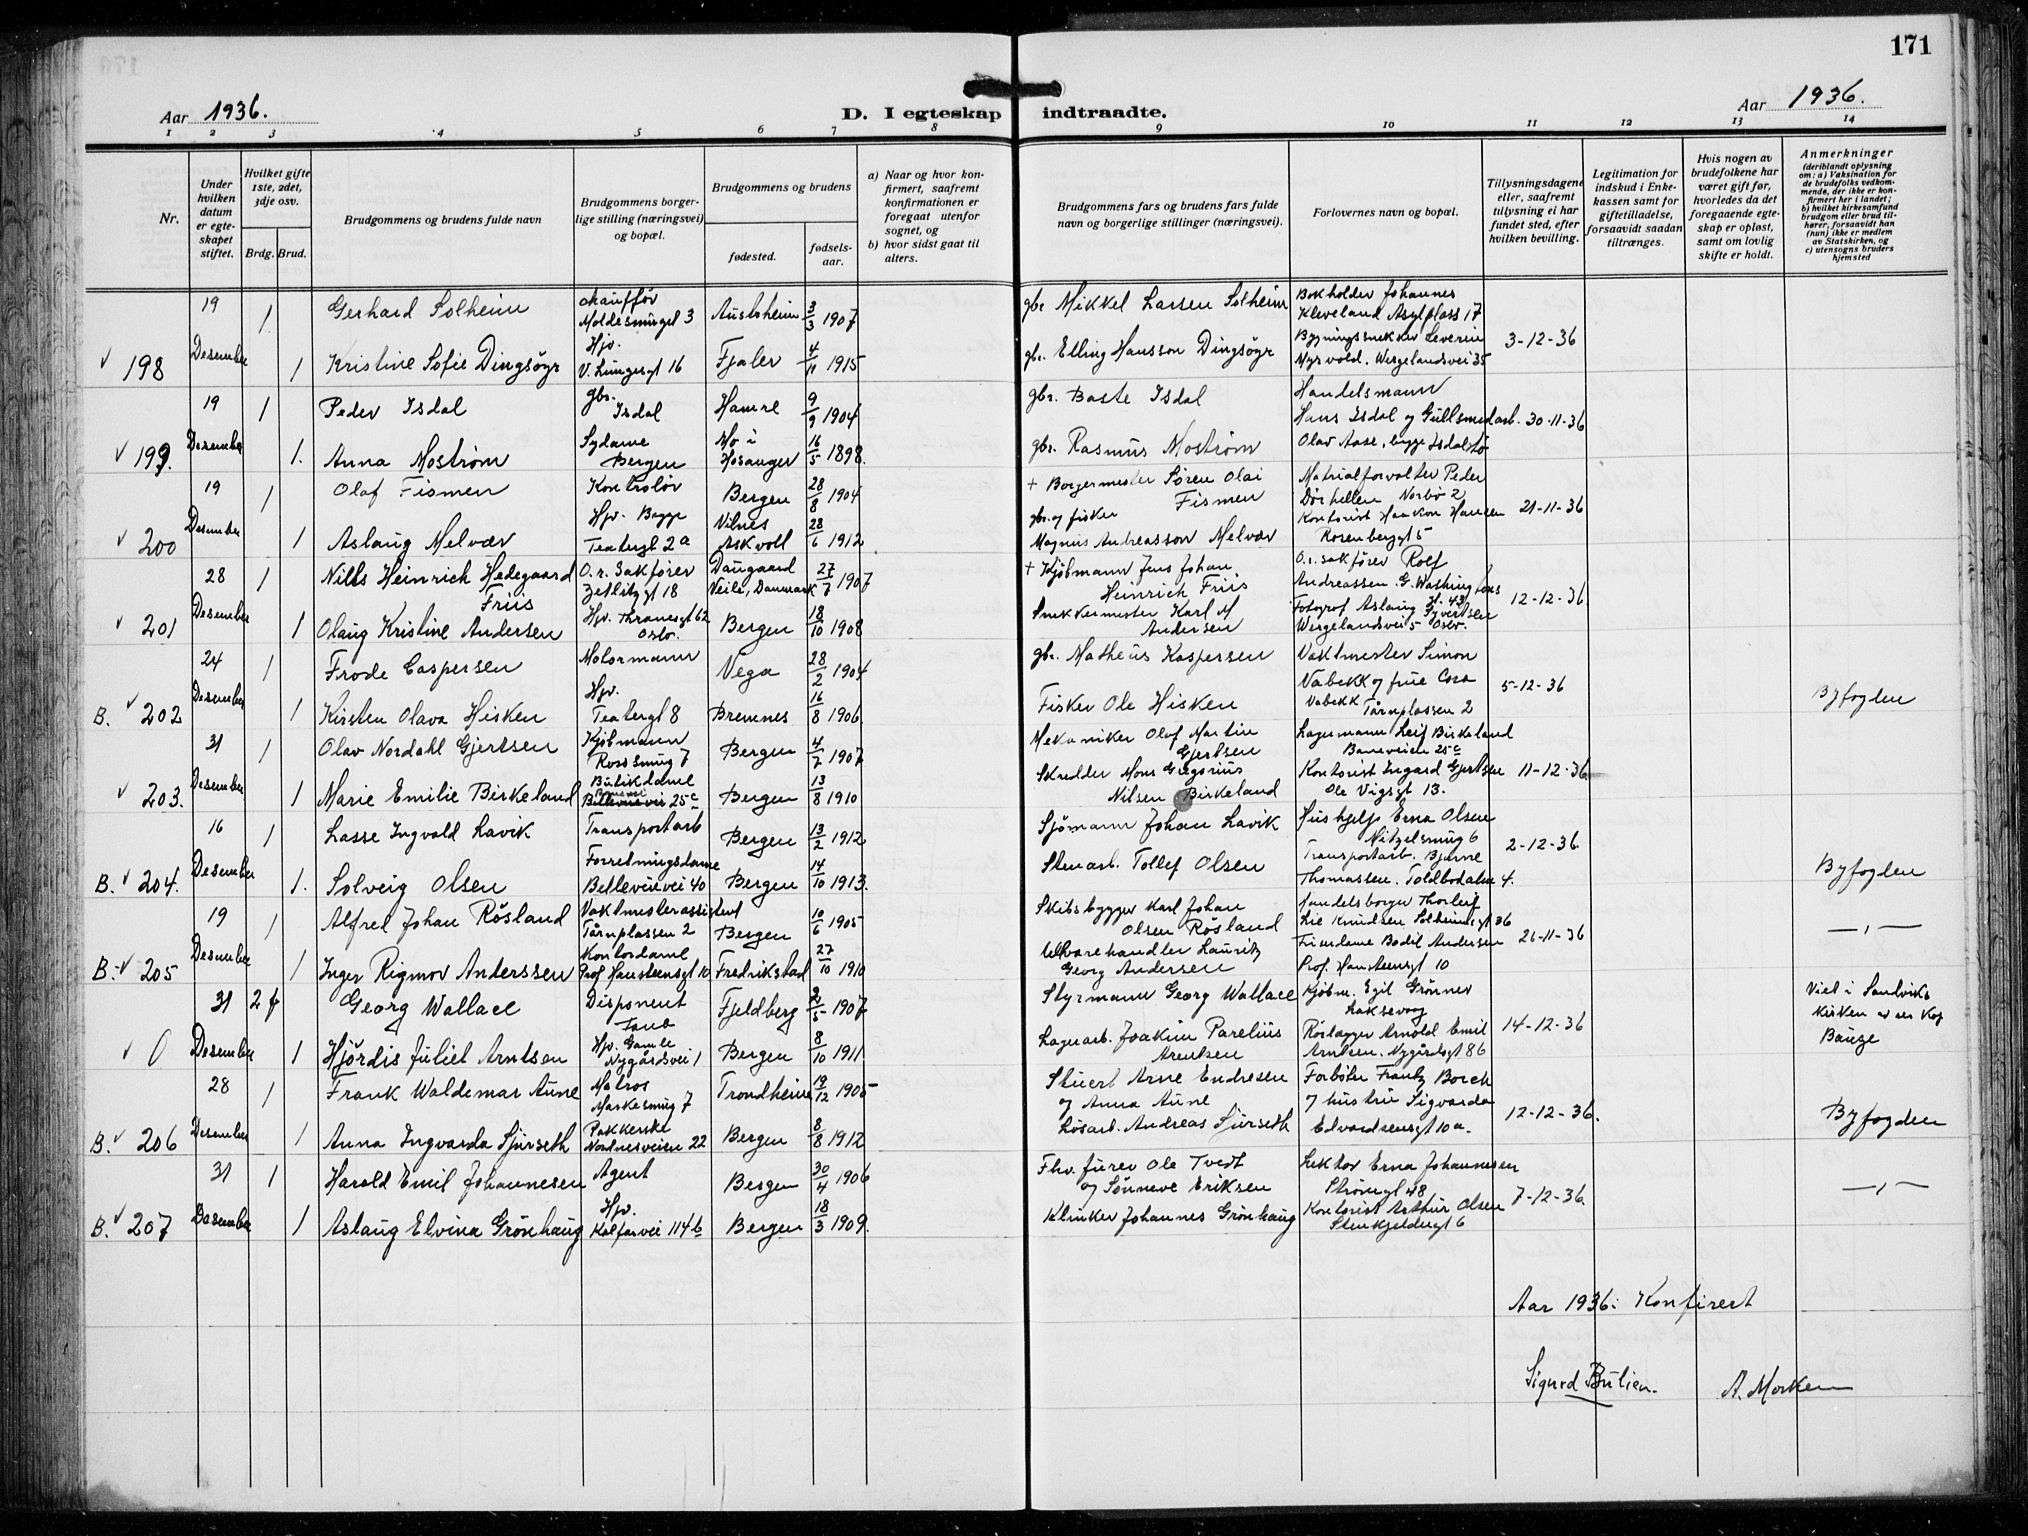 171
Aar 1936.
D. I egteskap indtraadte.
Aar 1936.
1 2 3 4 5 6 7 8 9 10 11 12 13 14
Nr.
Under hvilken datum er egteskapet stiftet.
Hvilket gifte 1ste, 2det, 3dje osv.
Brdg. Brud.
Brudgommens og brudens fulde navn
Brudgommens borgerlige stilling (næringsvei) og bopæl.
Brudgommens og brudens
fødested.
fødselsaar.
a) Naar og hvor konfirmert, saafremt konfirmationen er foregaat utenfor sognet, og
b) hvor sidst gaat til alters.
Brudgommens fars og brudens fars fulde navn og borgerlige stillinger (næringsvei).
Forlovernes navn og bopæl.
Tillysningsdagene eller, saafremt tillysning ei har fundet sted, efter hvilken bevilling.
Legitimation for indskud i Enkekassen samt for giftetilladelse, forsaavidt saadan tiltrænges.
Hvis nogen av brudefolkene har været gift før, hvorledes da det foregaaende egteskap er opløst, samt om lovlig skifte er holdt.
Anmerkninger
(deriblandt oplysning om: a) Vaksination for de brudefolks vedkommende, der ikke er konfirmert her i landet; b) hvilket kirkesamfund brudgom eller brud tilhører, forsaavidt han (hun) ikke er medlem av Statskirken, og c) utensogns bruders hjemsted
19 1 Gerhard Solheim chauffør Moldesmuget 3 Austrheim 3/3 1907 gbr. Mikkel Larsen Solheim Bokholder Johannes Kleveland Asylplass 17
198 Desember 1 Kristine Sofie Dingsöyr Hjv. V. Lungegt 16 Fjaler 4/11 1915 gbr. Elling Hansson Dingsöyr Bygningssnekker Severin Myrvold. Wergelandsvei 35 3-12-36
19 1 Peder Isdal gbr. Isdal Hamre 9/9 1904 gbr. Baste Isdal Handelsmann Hans Isdal og Gullsmedarb.
199. Desember 1. Anna Moström Sydame Bergen Mo i Hosanger 16/5 1898. gbr. Rasmus Moström Olav Aase, begge Isdalstö 30-11-36
19 1 Olaf Fismen Kontrolör Bergen 28/8 1904 + Borgermester Sören Olai Fismen Matrialforvalter Peder Dörhellen Norbö 2
200 Desember 1 Aslaug Melvær Hjv. Begge Teatergt 2a Vilnes Askvoll 28/6 1912 gbr. og fisker Magnus Andreasson Melvær Kontorist Haakon Hansen Rosenberggt 5 21-11-36
28 1 Nills Heinrich Hedegaard Friis O.r. Sakförer Zetlitzgt 18 Daugaard Veile, Danmark 27/7 1907 + Kjöbmann Jens Johan Heinrich Friis O.r. sakförer Rolf Andreassen. G. Washingtons
201 Desember 1 Olaug Kristine Andersen Hjv. Thranesgt 62 Oslo. Bergen 18/10 1908 Snekkermester Karl M Andersen Fotograf Aslaug Syvertsen Wergelandsvei 5 Oslo. 12-12-36
24 1 Frode Caspersen Motormann Vega 28/2 1904 gbr. Matheus Kaspersen Vaktmester Simon Vabekk og frue Cora
B. 202 Desember 1 Kirsten Olava Hisken Hjv. Teatergt 8 Bremnes 16/8 1906. Fisker Ole Hisken Vabekk Tårnplassen 2 5-12-36 Byfogden
31 1 Olav Nordahl Gjertsen Kjöbmann Rosesmug 7 Bergen 4/7 1907 Mekaniker Olaf Martin Gjertsen Lagermann Leif Birkeland Baneveien 25c
203. Desember 1 Marie Emilie Birkeland Butikdame 25c Bergen 13/8 1910 Skredder Mons Gregorius Nilsen Birkeland Kontorist Ingard Gjertsen Ole Vigsgt 13. 11-12-36
16 1 Lasse Ingvald Lavik Transportarb Bergen 13/2 1912 Sjömann Johan Lavik Hushjelp Erna Olsen Nitzelsmug 6
B. 204. Desember 1. Solveig Olsen Forretningsdame Bellevuevei 40 Bergen 14/10 1913. Stenarb. Tollef Olsen Transportarb. Bjarne Thomassen. Toldbodalm 4. 2-12-36 Byfogden
19 1 Alfred Johan Røsland Vaktmesterassistent Tårnplassen 2 Bergen 10/6 1905 Skibsbygger Karl Johan Olsen Røsland Handelsborger Thorleif Lie Knudsen Solheimsgt 36
B. 205 Desember 1 Inger Rigmor Anderssen Kontordame Prof. Hansteensgt 10 Fredrikstad 27/10 1910 Lauritz Georg Andersen Bodil Andersen Prof. Hansteensgt 10 26-11-36 —"—
31 2 f Georg Wallace Disponent Fjeldberg 1907 Styrmann Georg Wallace Kjöbm. Egil Grönner Laksevåg Viet i Sandviks kirken av res Kap Bauge
0 Desember 1 Hjördis Juliet Arntsen Hjv. Gamle Nygårdsvei 1 Bergen 8/10 1911. Lagerarb. Joakim Parelius Arentsen Rörlegger Arnold Emil Arntsen. Nygårdsgt 86 14-12-36
28 1 Frank Waldemar Aune Matros Markesmug 7 Trondheim 19/12 1905 Stuert Arne Endresen og Anna Aune Forbötn Frantz Borch
B. 206 Desember 1 Anna Ingvarda Sjurseth Pakkerske Nordnesveien 22 Bergen 8/8 1912 Løsarb. Andreas Sjurseth og hustru Sigvarda Edvardsensgt 10a. 12-12-36. Byfogden
31 1 Harald Emil Johannesen Agent Bergen 30/4 1906 Fhv. furer Ole Tvedt og Sönneve Eriksen Lektor Erna Johannesen Strömgt 48
B. 207 Desember 1 Aslaug Elvina Grönhaug Hjv. Kalfarvei 114b Bergen 18/3 1909. Klinker Johannes Grönhaug Kontorist Arthur Olsen Stenkjeldergt 6 7-12-36. —"—
Aar 1936: Konfirert
Sigurd Bulien. A. Morken